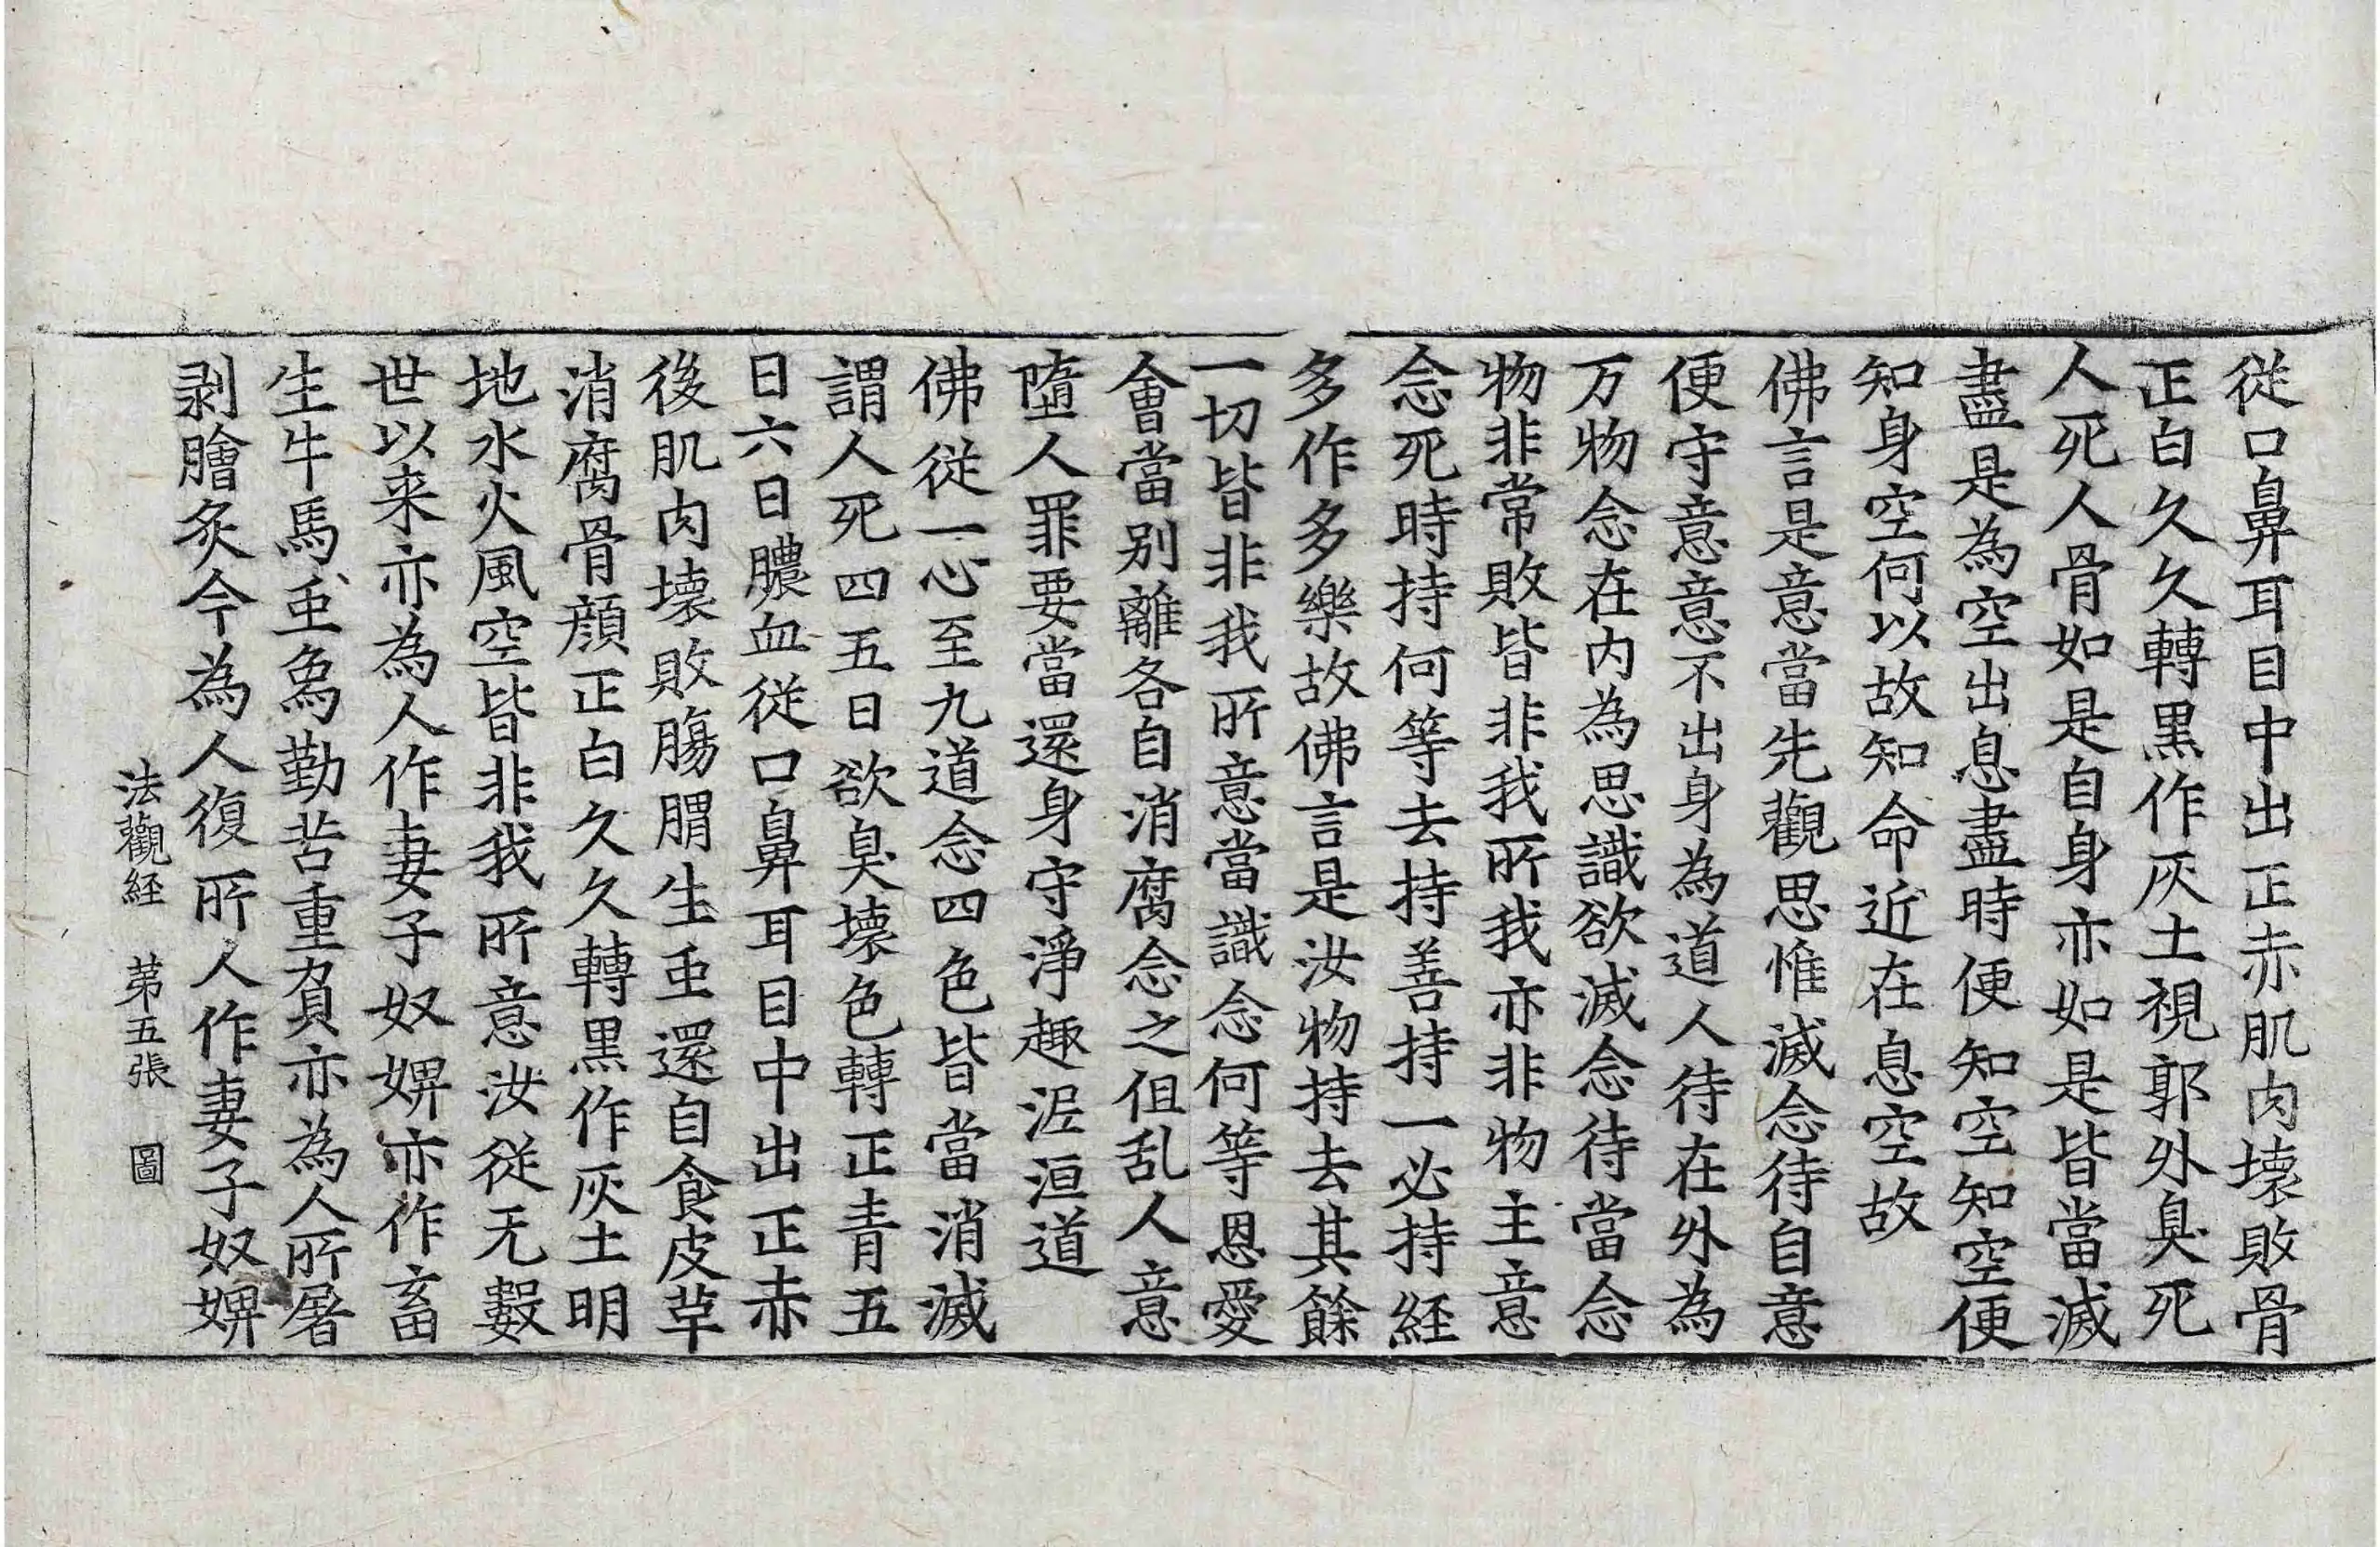 従口鼻耳目中出正赤肌肉壊敗骨
正白久久轉黒作灰土視郭外臭死
人死人骨如是自身亦如是皆當滅
盡是為空出息盡時便知空知空便
知身空何以故知命近在息空故
佛言是意當先觀思惟滅念待自意
便守意意不出身為道人待在外為
万物念在内為思識欲滅念待當念
物非常敗皆非我所我亦非物主意
念死時持何等去持善持一必持経
多作多樂故佛言是汝物持去其餘
一切皆非我所意當識念何等恩愛
會當別離各自消腐念之伹乱人意
墮人罪要當還身守淨趣泥洹道
佛従一心至九道念四色皆當消滅
謂人死四五日欲臭壊色轉正青五
日六日膿血従口鼻耳目中出正赤
後肌肉壊敗腸胃生䖝還自食皮草
消腐骨顔正白久久轉黒作灰土明
地水火風空皆非我所意汝従无數
世以来亦為人作妻子奴婢亦作畜
生牛馬䖝象勤苦重負亦為人所屠
剥膾炙今為人復所人作妻子奴婢
法觀経 第五張 圖